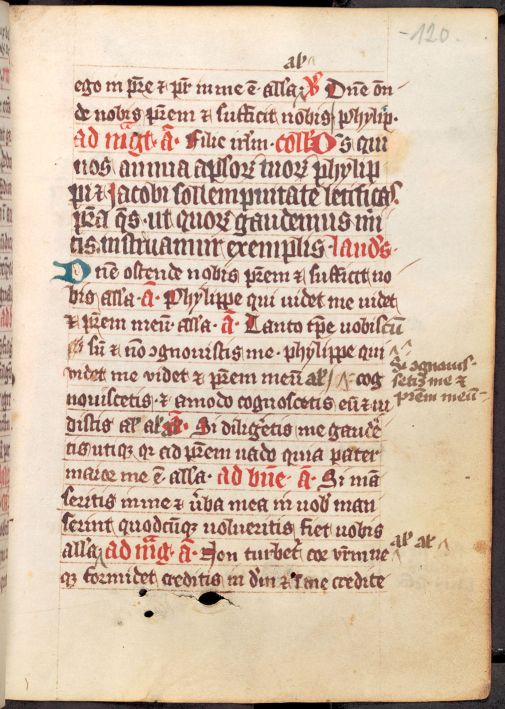 -120.
al'a
ego in pr̄e ⁊ pr̄ in me ē · alla · v̉ Dn̄e on̄
de nobis pr̄em ⁊ sufficit nobis phylip ·
ad mgt · a̅ · Filie irlm · coll̄ Ds̄ qui
nos annua ap̄lor̄ tuor̄ phylip
pi ⁊ Jacobi sollempnitate letificas ·
pr̄a q̄s · ut quor̄ gaudemus m̄i
tis instruamur exemplis · laud̄s ·
Dn̄e ostende nobis pr̄em ⁊ sufficit no
bis alla · a̅ · Phylippe qui uidet me uidet
⁊ pr̄em meū · alla · a̅ · Tanto tp̄e uobiscū
sū ⁊ nō ɔgnouistis me · phylippe qui
videt me videt ⁊ pr̄em meū al' · cog
Si ɔgnouis-
setis me ⁊
pr̄em meū-
nouiscetis · ⁊ amodo cognoscetis eū ⁊ ui
distis al' al' · a̅ · Si diligetis me gaudē
tis utiqꝫ qr̄ ad pr̄em uado quia pater
maior me ē · alla · ad bn̄e · a̅ · Si mā
seritis in me ⁊ ūba mea in uob' man
serint quodcūqꝫ uolueritis fiet uobis
alla · ad mḡ · a̅ · Non turbet' cor vr̄m ne
al' al'
qꝫ formidet creditis in dm̄ ⁊ ī me credite